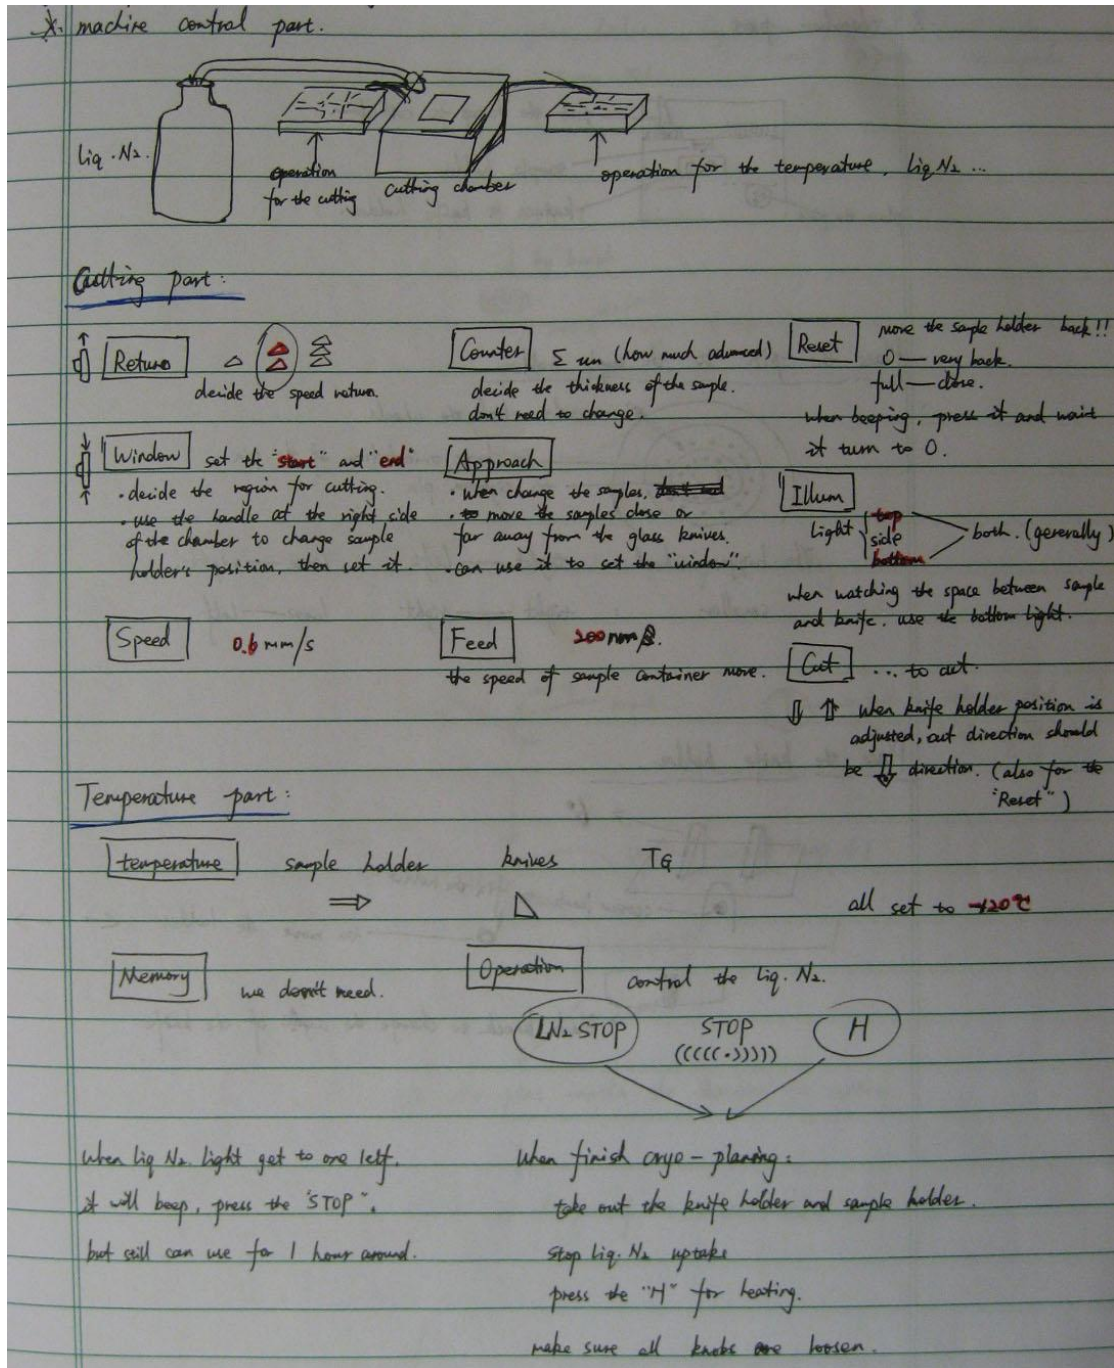 ※. machine control part.
Liq. N2.
operation
for the cutting
cutting chamber
operation for the temperature, liq N2 ...
Cutting part:
Return
decide the speed return.
Window set the "start" and "end"
· decide the region for cutting.
· use the handle at the right side
of the chamber to change sample
holder's position, then set it.
Speed 0.6 mm/s
Counter Σ um (how much advanced)
decide the thickness of the sample.
don't need to change.
Approach
· when change the samples,
· to move the samples close or
far away from the glass knives.
· can use it to set the "window".
Feed 200 nm
the speed of sample container move.
Reset move the sample holder back!!
0 — very back.
full — close.
when beeping, press it and wait
it turn to 0.
Illum
Light { top
side
bottom
both. (generally)
when watching the space between sample
and knife. use the bottom light.
Cut ... to cut.
⇩ ⇧ when knife holder position is
adjusted, cut direction should
be ⇩ direction. (also for the
"Reset")
Temperature part:
temperature sample holder knives TG
⇒ all set to -120℃
Memory we don't need.
Operation control the Liq. N2.
LN2 STOP STOP H
(((((·)))))
when liq N2. light get to one letf.
it will beep, press the "STOP".
but still can use for 1 hour around.
when finish cryo-planing:
take out the knife holder and sample holder.
stop Liq. N2 uptake
press the "H" for heating.
make sure all knobs are loosen.